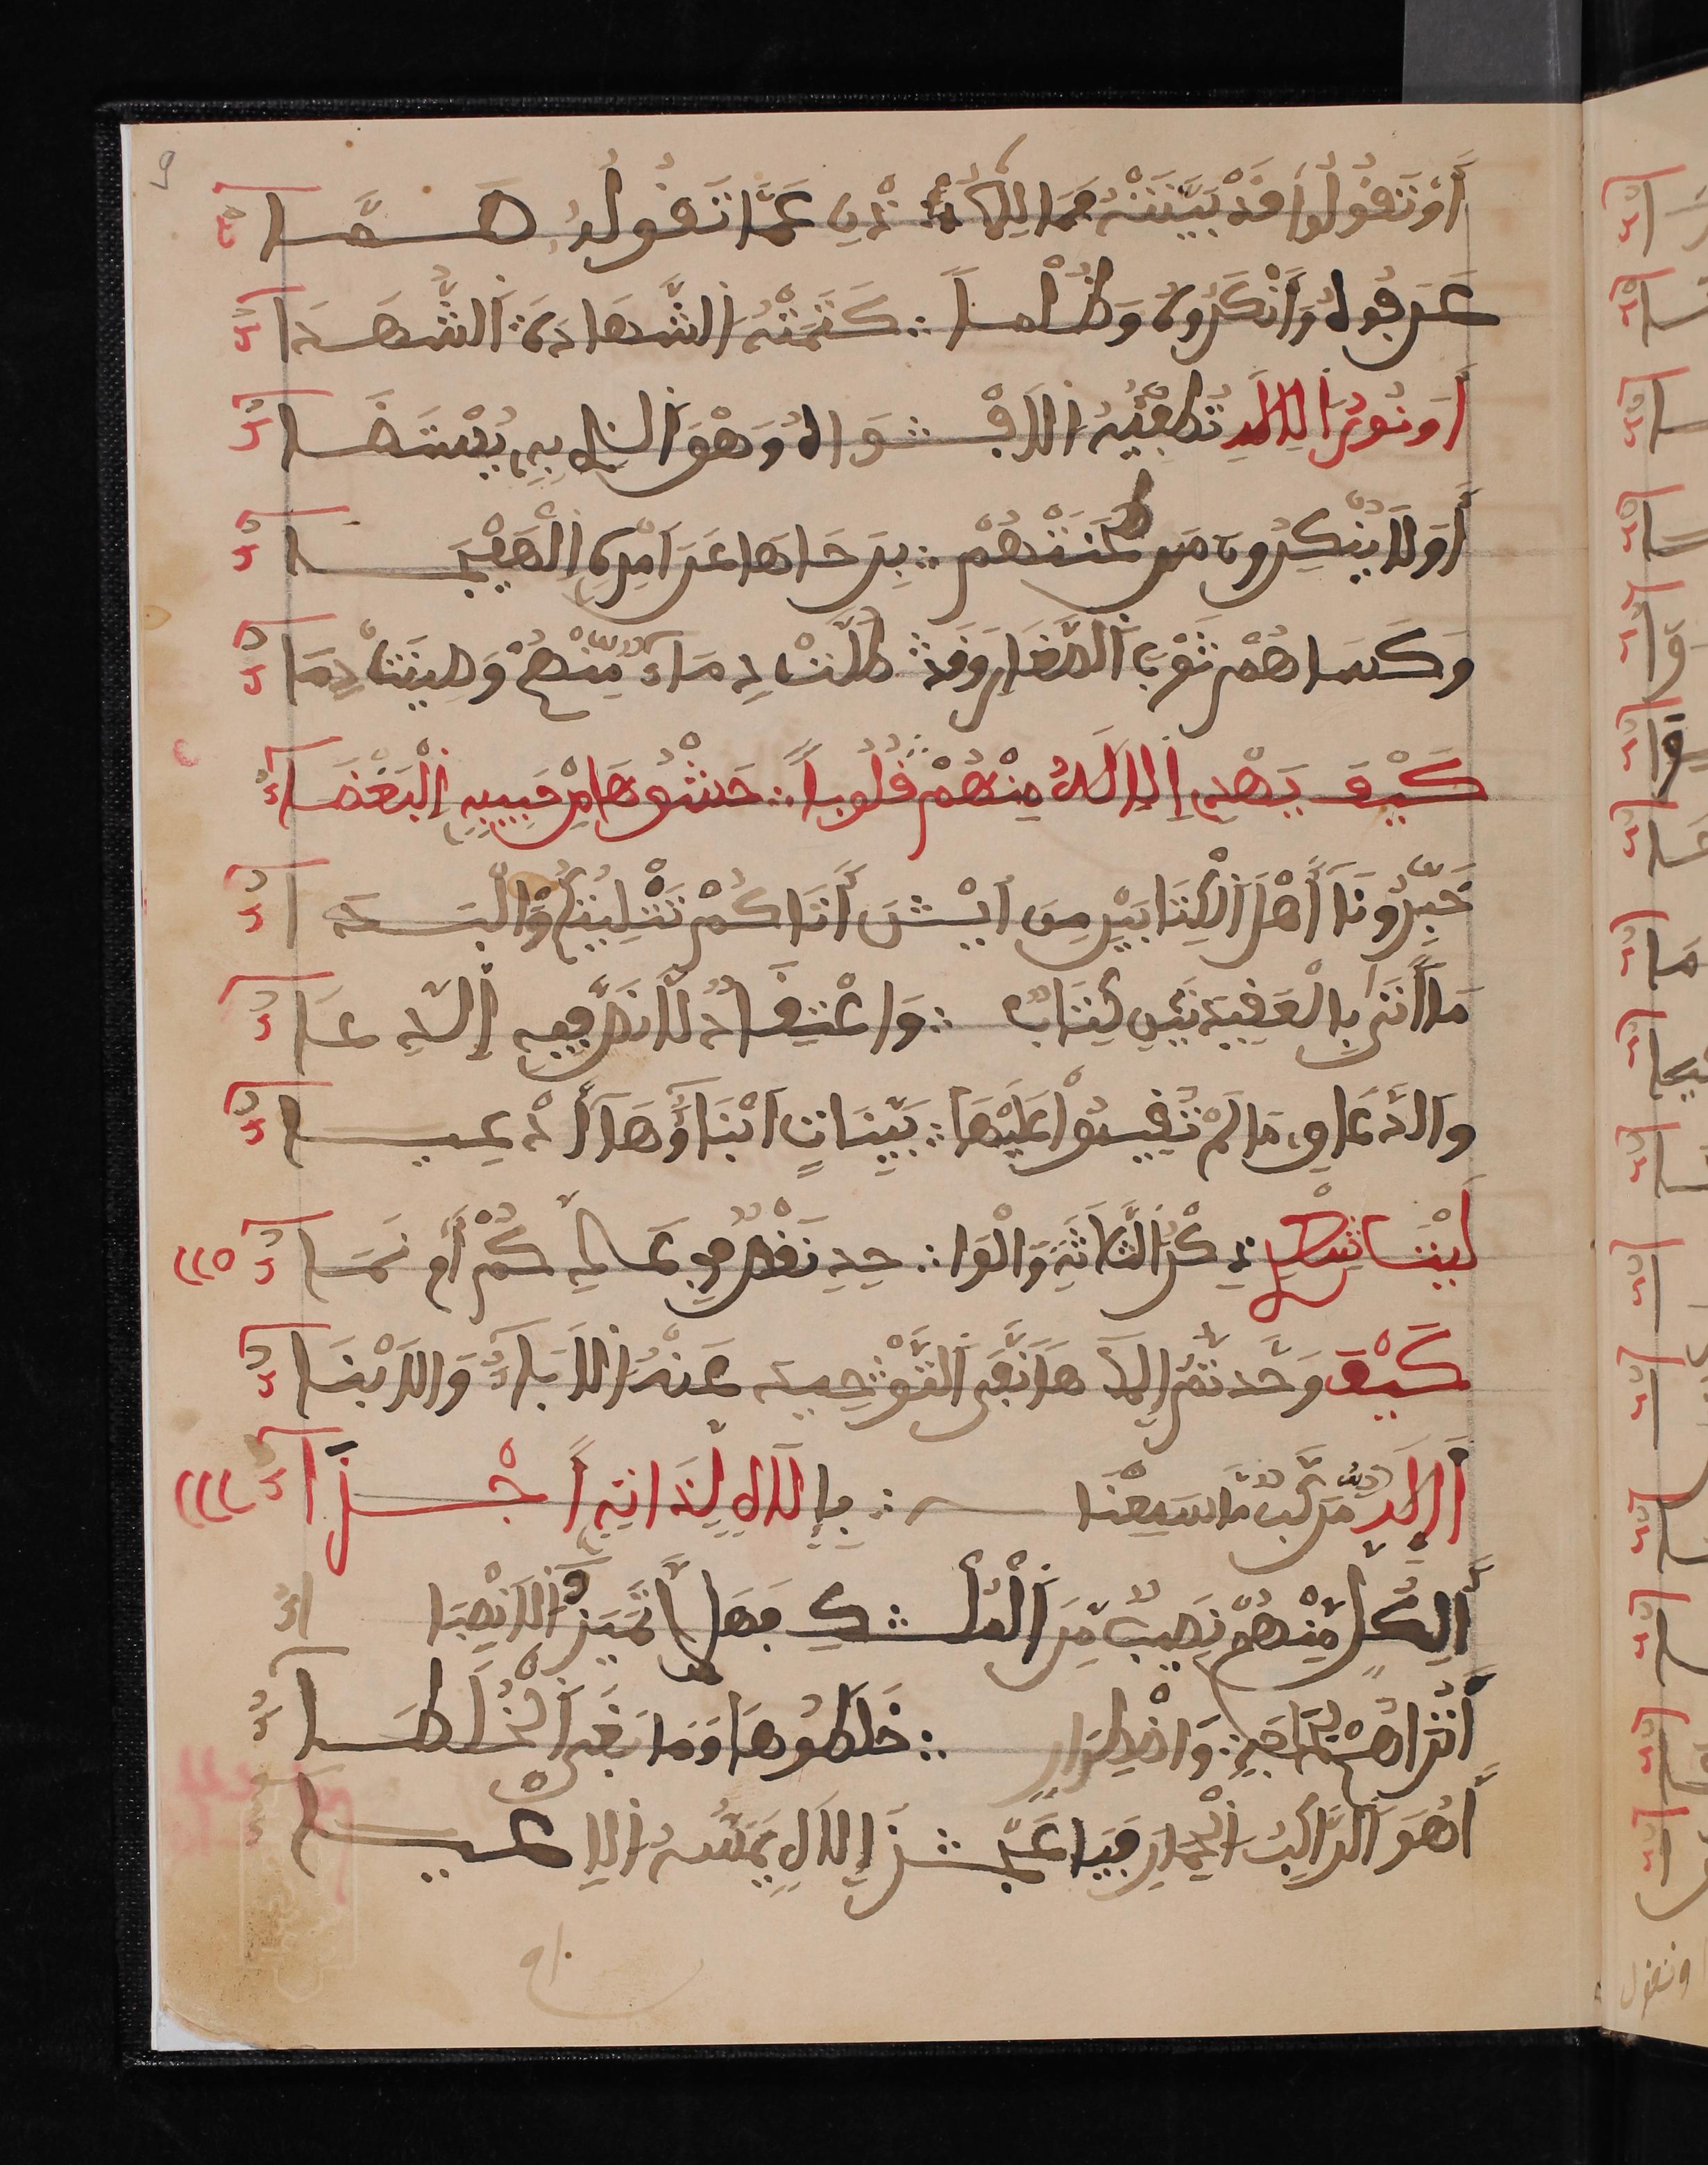 أَوْ تَقُولُوا قَدْ بَيَّنَتْهُ فَمَا لِلْأُ ∴ ذْنِ عَمَّا تَقُولُهُ صَمَّا ءُ
عَرَفُوهُ وَأَنْكَرُوهُ وَظُلْماً ∴ كَتَمَتْهُ الشَّهَادَةَ الشُّهَدَاءُ
أَوَ نُورُ الْإِلَهِ تُطْفِئُهُ الْأَفْ ∴ وَاهُ وَهْوَ الَّذِي بِهِ يُسْتَضَاءُ
أَوَلَا يُنْكِرُونَ مَن طَحَنَتْهُمْ ∴ بِرَحَاهَا عَنَ امْرِهِ الْهَيْجَاءُ
وَكَسَاهُمْ ثَوْبَ الصَّغَارِ وَقَدْ ∴ طُلَّتْ دِمَاءٌ مِّنْهُمْ وَصِينَتْ دِمَاءُ
كَيْفَ يَهْدِي الْإِلَهُ مِنْهُمْ قُلُوباً ∴ حَشْوُهَا مِن حَبِيبِهِ الْبَغْضَاءُ
خَبِّرُونَا أَهْلَ الْكِتَابَيْنِ مِنَ ايْنَ ∴ أَتَاكُمْ تَثْلِيثُكُمْ وَالْبَدَاءُ
مَا أَتَى بِالْعَقِيدَتَيْنِ كِتَابٌ ∴ وَاعْتِقَادٌ لَّا نَصَّ فِيهِ ادِّعَاءُ
وَالدَّعَاوِي مَا لَمْ تُقِيمُوا عَلَيْهَا ∴ بَيِّنَاتٍ اَبْنَاؤُهَا أَدْعِيَاءُ
لَيْتَ شِعْرِي ذِكْرُ الثَّلَاثَةِ وَالْوَا ∴ حِدِ نَقْصٌ فِي عَدِّكُمْ أَم نَمَاءُ
كَيْفَ وَحَّدتُّمُ إِلَهاً نَفَى التَّوْ ∴ حِيدَ عَنْهُ الْآبَاءُ وَالْأَبْنَاءُ
أَإِلَهٌ مُّرَكَّبٌ مَّا سَمِعْنَا ∴ بِإِلَهٍ لِذَاتِهِ أَجْزَاءُ
أَلِكُلٍّ مِّنْهُمْ نَصِيبٌ مِّنَ الْمُلْ ∴ كِ فَهَلَّا تَمَيَّزُ الْأَنْصِبَاءُ
أَتُرَاهُمْ لِحَاجَةٍ وَاضْطِرَارٍ ∴ خَلَطُوهَا وَمَا بَغَى الْخُلَطَاءُ
أَهُوَ الرَّاكِبُ الْحِمَارَ فَيَا عَجْ ∴ زَ إِلَهٍ يَمَسُّهُ الْإِعْيَاءُ